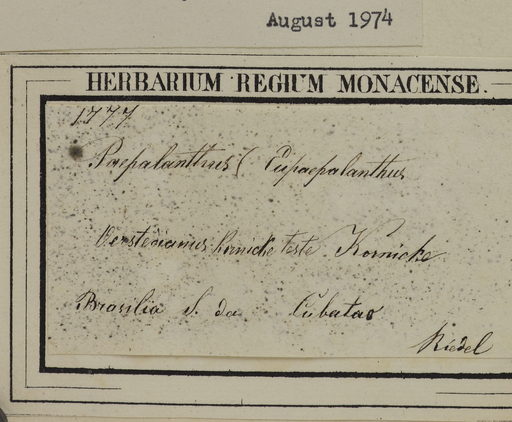 August 1974
HERBARIUM REGIUM MONACENSE.
1777
Paepalanthus ( Eupaepalanthus
Oerstedianus Kornicke teste Kornicke
Brasilia S. da Cubatao
Riedel